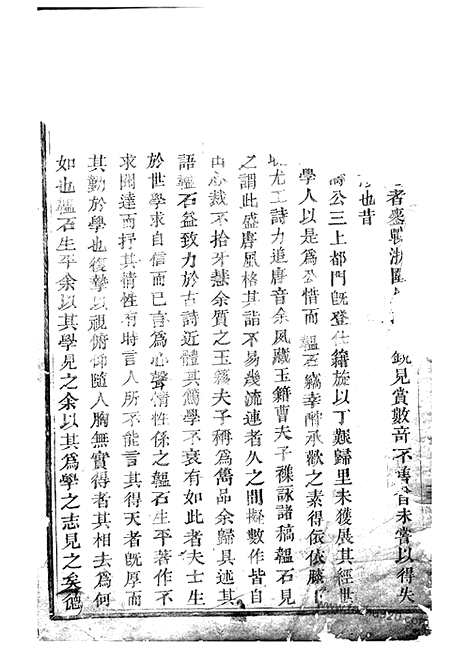 者鏖戰浙闈 見賞數奇不偶官未嘗以得失
也昔
公三上都門旣登仕籍旋以丁艱歸里未獲展其經世
學人以是爲公惜而韞石竊幸酧承歡之素得依依膝
尤工詩力追唐音余夙藏玉籍曹夫子襍詠諸稿韞石見
之謂此盛唐風格其詣不易幾流連者久之間擬數作皆自
心裁不拾牙慧余質之玉籍夫子稱爲雋品余歸具述其
語韞石益致力於古詩近體其篤學不衰有如此者夫士生
於世學求自信而已言爲心聲情性係之韞石生平著作不
求聞達而抒其情性有時言人所不能言其得天者旣厚而
其勤於學也復摯以視俯仰隨人胸無實得者其相去爲何
如也韞石生平余以其學見之余以其爲學之志見之矣德